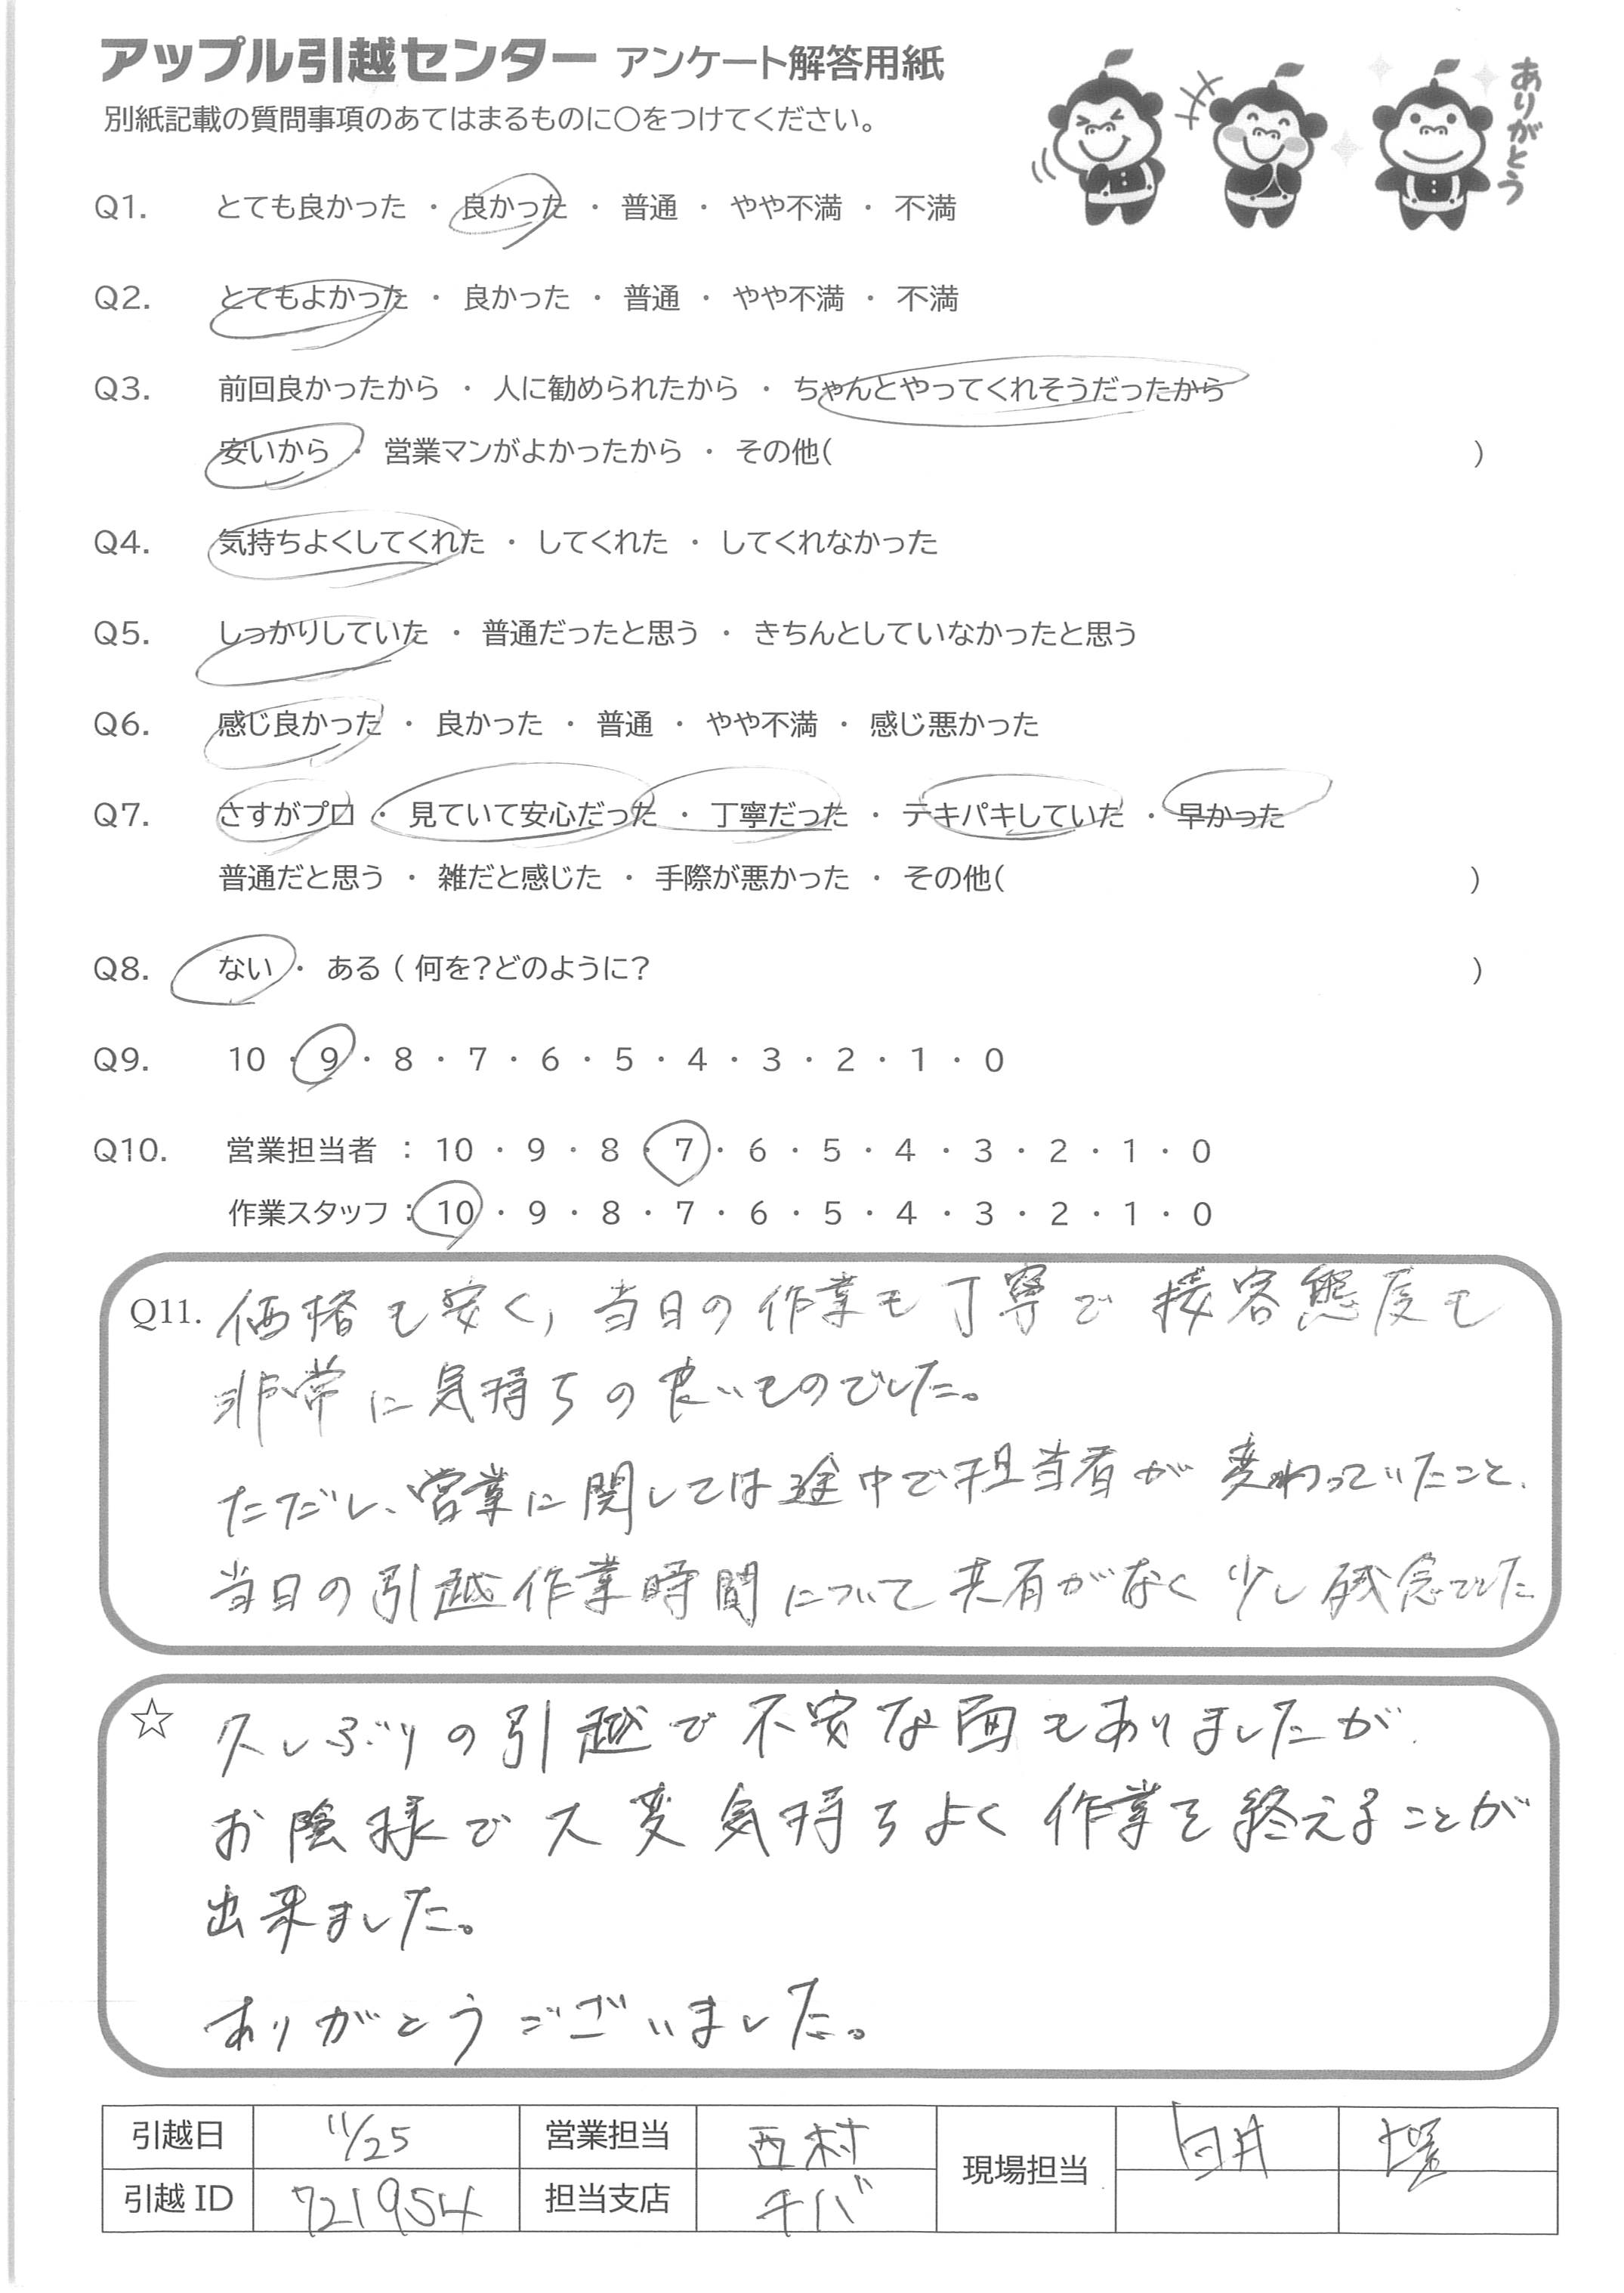 アップル引越センター アンケート解答用紙
別紙記載の質問事項のあてはまるものに○をつけてください。
ありがとう
Q1. とても良かった ・ 良かった ・ 普通 ・ やや不満 ・ 不満
Q2. とてもよかった ・ 良かった ・ 普通 ・ やや不満 ・ 不満
Q3. 前回良かったから ・ 人に勧められたから ・ ちゃんとやってくれそうだったから
安いから ・ 営業マンがよかったから ・ その他( )
Q4. 気持ちよくしてくれた ・ してくれた ・ してくれなかった
Q5. しっかりしていた ・ 普通だったと思う ・ きちんとしていなかったと思う
Q6. 感じ良かった ・ 良かった ・ 普通 ・ やや不満 ・ 感じ悪かった
Q7. さすがプロ ・ 見ていて安心だった ・ 丁寧だった ・ テキパキしていた ・ 早かった
普通だと思う ・ 雑だと感じた ・ 手際が悪かった ・ その他( )
Q8. ない ・ ある ( 何を?どのように? )
Q9. 10 ・ 9 ・ 8 ・ 7 ・ 6 ・ 5 ・ 4 ・ 3 ・ 2 ・ 1 ・ 0
Q10. 営業担当者 : 10 ・ 9 ・ 8 ・ 7 ・ 6 ・ 5 ・ 4 ・ 3 ・ 2 ・ 1 ・ 0
作業スタッフ : 10 ・ 9 ・ 8 ・ 7 ・ 6 ・ 5 ・ 4 ・ 3 ・ 2 ・ 1 ・ 0
Q11. 価格も安く、当日の作業も丁寧で接客態度も
非常に気持ちの良いものでした。
ただし、営業に関しては途中で担当者が変わっていたこと、
当日の引越作業時間について共有がなく少し残念でした
☆ 久しぶりの引越で不安な面もありましたが、
お陰様で大変気持ちよく作業を終えることが
出来ました。
ありがとうございました。
引越日 11/25 営業担当 西村 現場担当 臼井
引越ID 721954 担当支店 チバ